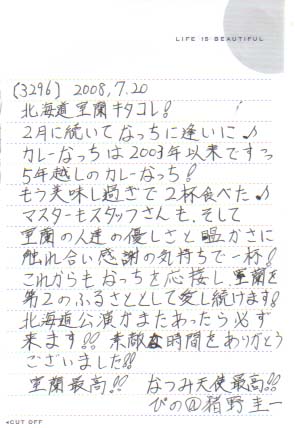 LIFE IS BEAUTIFUL
〔3296〕 2008,7.20
北海道室蘭キタコレ!
2月に続いてなっちに逢いに♪
カレーなっちは2003年以来ですっ
5年越しのカレーなっち!
もう美味し過ぎで2杯食べた♪
マスターもスタッフさんも、そして
室蘭の人達の優しさと温かさに
触れ合い感謝の気持ちで一杯!
これからもなっちを応援し室蘭を
第2のふるさととして愛し続けます!
北海道公演がまたあったら必ず
来ます!! 素敵な時間をありがとう
ございました!!
室蘭最高!! なつみ天使最高!!
ぴの@猪野圭一
◂CUT OFF